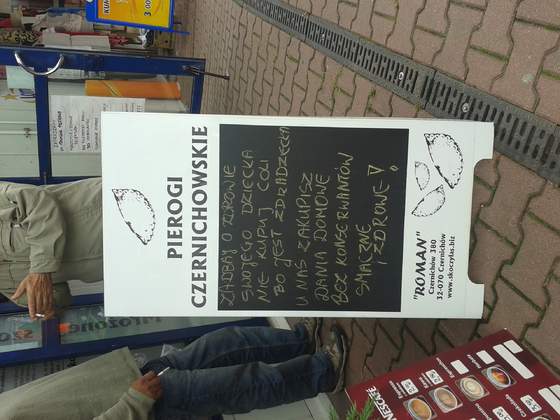 PIEROGI
CZERNICHOWSKIE
ZADBAJ O ZDROWIE
SWOJEGO DZIECKA
NIE KUPUJ COLI
BO JEST ZDRADZIECKA
U NAS ZAKUPISZ
DANIA DOMOWE
BEZ KONSERWANTÓW
SMACZNE
I ZDROWE!
"ROMAN"
Czernichów 380
32-070 Czernichów
www.skoczylas.biz
NESCAFÉ